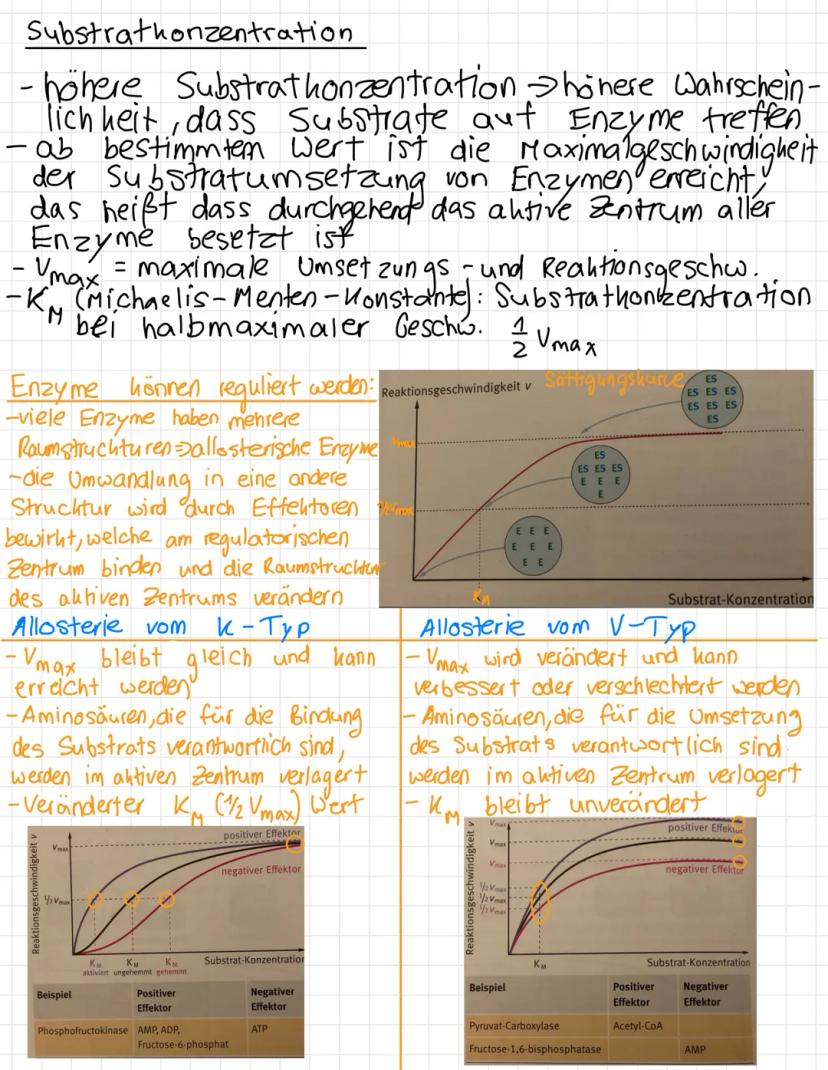 Substratkonzentration
- höhere Substratkonzentration ⇒ höhere Wahrschein-
lichkeit, dass Substrate auf Enzyme treffen
- ab bestimmtem Wert ist die Maximalgeschwindigkeit
der Substratumsetzung von Enzymen erreicht,
das heißt dass durchgehend das aktive Zentrum aller
Enzyme besetzt ist
- Vmax = maximale Umsetzungs - und Reaktionsgeschw.
- KM (Michaelis-Menten-Konstante): Substratkonzentration
bei halbmaximaler Geschw. 1/2 Vmax
Enzyme können reguliert werden:
- viele Enzyme haben mehrere
Raumstruckturen ⇒ allosterische Enzyme
- die Umwandlung in eine andere
Strucktur wird durch Effektoren
bewirkt, welche am regulatorischen
Zentrum binden und die Raumstrucktur
des aktiven Zentrums verändern
Reaktionsgeschwindigkeit v
Sättigungskurve
ES
ES ES ES
ES ES ES
ES
Vmax
ES
ES ES ES
E E E
E
1/2 Vmax
E E E
E E E
E E
KM
Substrat-Konzentration
Allosterie vom K-Typ
- Vmax bleibt gleich und kann
erreicht werden
- Aminosäuren, die für die Bindung
des Substrats verantwortlich sind,
werden im aktiven Zentrum verlagert
- Veränderter KM (1/2 Vmax) Wert
Reaktionsgeschwindigkeit v
positiver Effektor
Vmax
negativer Effektor
1/2 Vmax
KM KM KM
aktiviert ungehemmt gehemmt
Substrat-Konzentration
Beispiel Positiver Effektor Negativer Effektor
Phosphofructokinase AMP, ADP, ATP
Fructose-6-phosphat
Allosterie vom V-Typ
- Vmax wird verändert und kann
verbessert oder verschlechtert werden
- Aminosäuren, die für die Umsetzung
des Substrats verantwortlich sind
werden im aktiven Zentrum verlagert
- KM bleibt unverändert
Reaktionsgeschwindigkeit v
Vmax
positiver Effektor
Vmax
Vmax
negativer Effektor
1/2 Vmax
1/2 Vmax
1/2 Vmax
KM
Substrat-Konzentration
Beispiel Positiver Effektor Negativer Effektor
Pyruvat-Carboxylase Acetyl-CoA
Fructose-1,6-bisphosphatase AMP